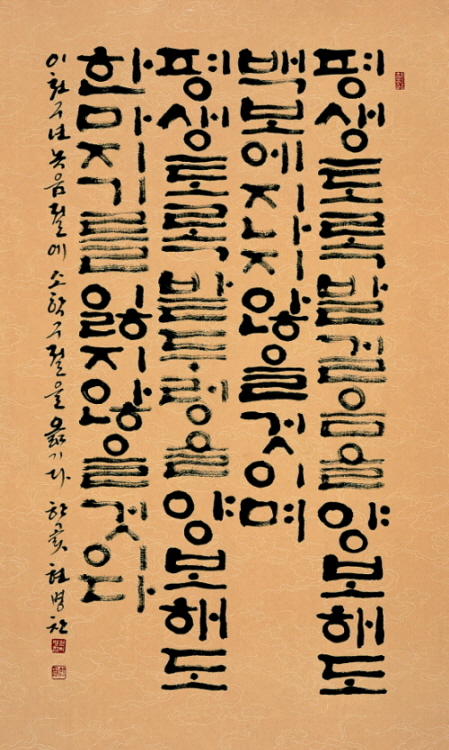 평생토록 발걸음을 양보해도
백보에 지나지 않을 것이며
평생토록 밭두렁을 양보해도
한마지기를 잃지 않을 것이다
이천구년 녹음절에 소학구절을 옮기다 한곬 현병찬